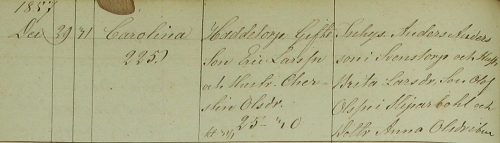 1857
Dec 29 31 Carolina
225)
Haddetorp. Gifte
Son Eric Larsson
och Hustr. Cher-
stin Olsdr.
25
Inhys. Anders Anders
son i Stenstorp och Hustr.
Brita Larsdr. Son Olof
Olsson i och
Dottr Anna Olsdr ibm